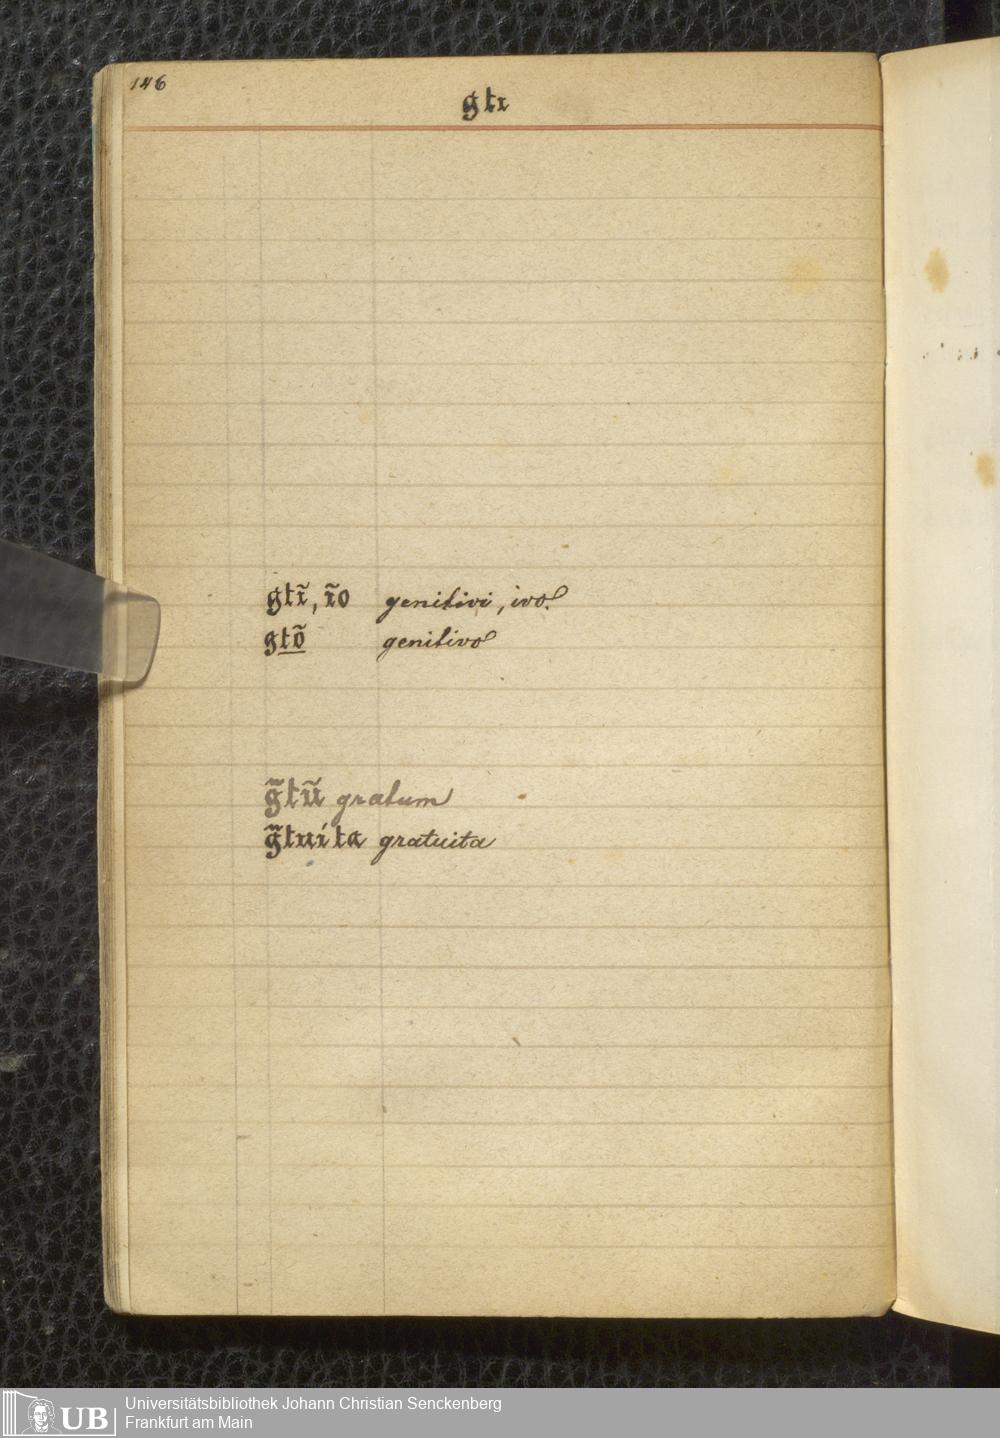 146
gti
gtĩ, ĩo genitivi, ivo.
gtõ genitivo
g̃tũ gratum
g̃tuita gratuita
UB Universitätsbibliothek Johann Christian Senckenberg
Frankfurt am Main